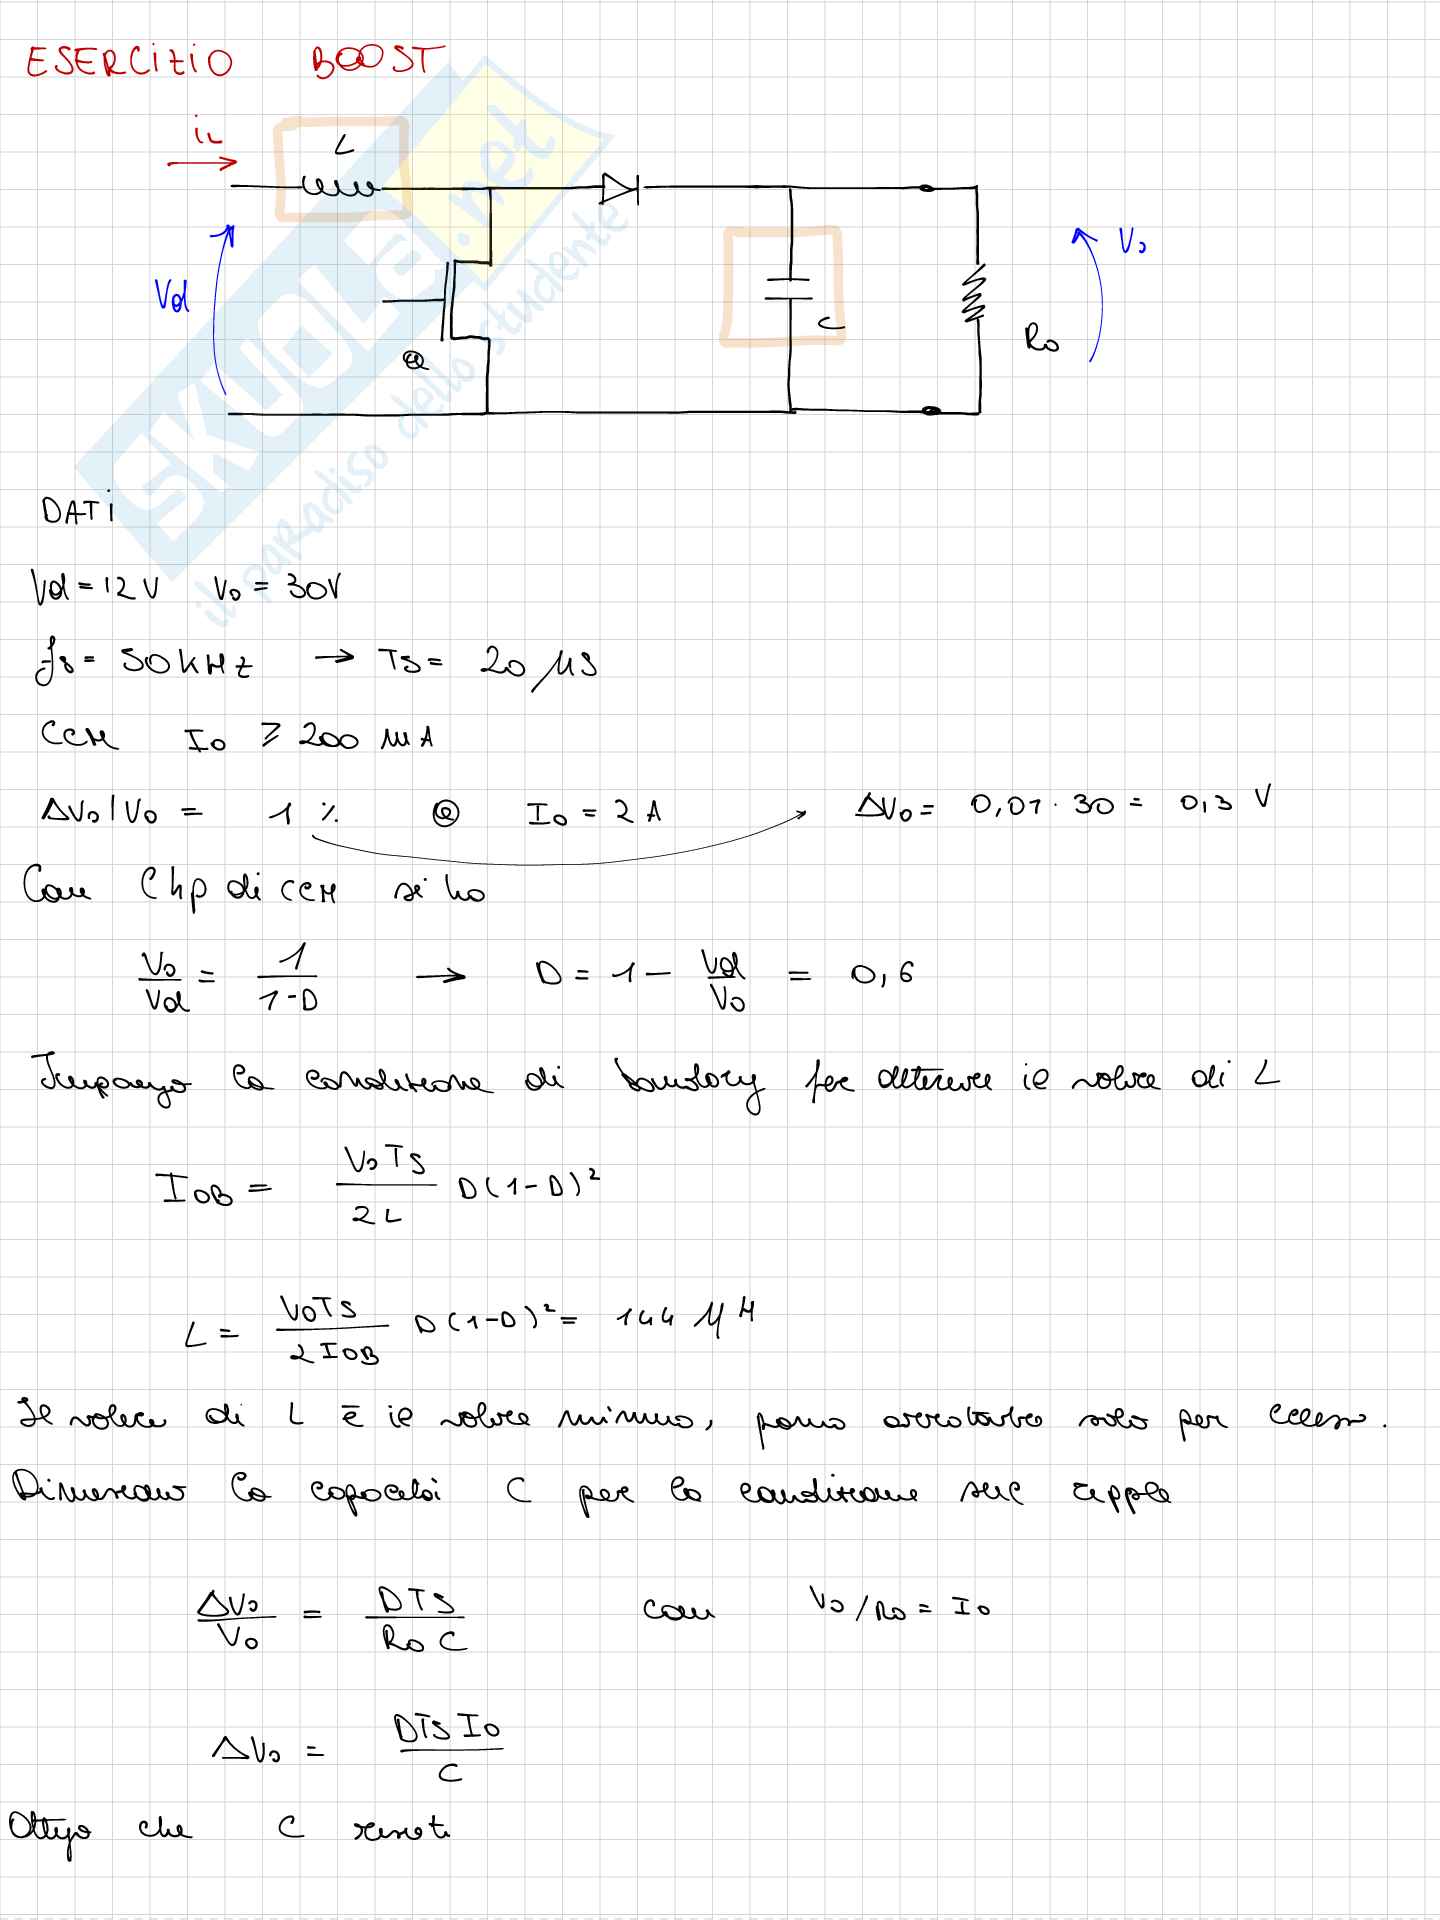 ESERCIZIO BOOST
iL
L
Vd
Q
C
Ro
Vo
SKUOLA.net
il paradiso dello studente
DATI
Vd = 12 V Vo = 30V
fs = 50 kHz → TS = 20 μs
CCM Io ≥ 200 mA
ΔVo/Vo = 1 % @ Io = 2 A ΔVo = 0,01 · 30 = 0,3 V
Con l'hp di CCM si ha
Vo/Vd = 1/(1-D) → D = 1 - Vd/Vo = 0,6
Impongo la condizione di boundary per ottenere il valore di L
IOB = VoTS/2L D(1-D)²
L = VoTS/2IOB D(1-D)² = 144 μH
Il valore di L è il valore minimo, posso arrotondare solo per eccesso.
Dimensiono la capacità C per la condizione sul ripple
ΔVo/Vo = DTS/RoC con Vo/Ro = Io
ΔVo = DTS Io/C
Ottengo che C